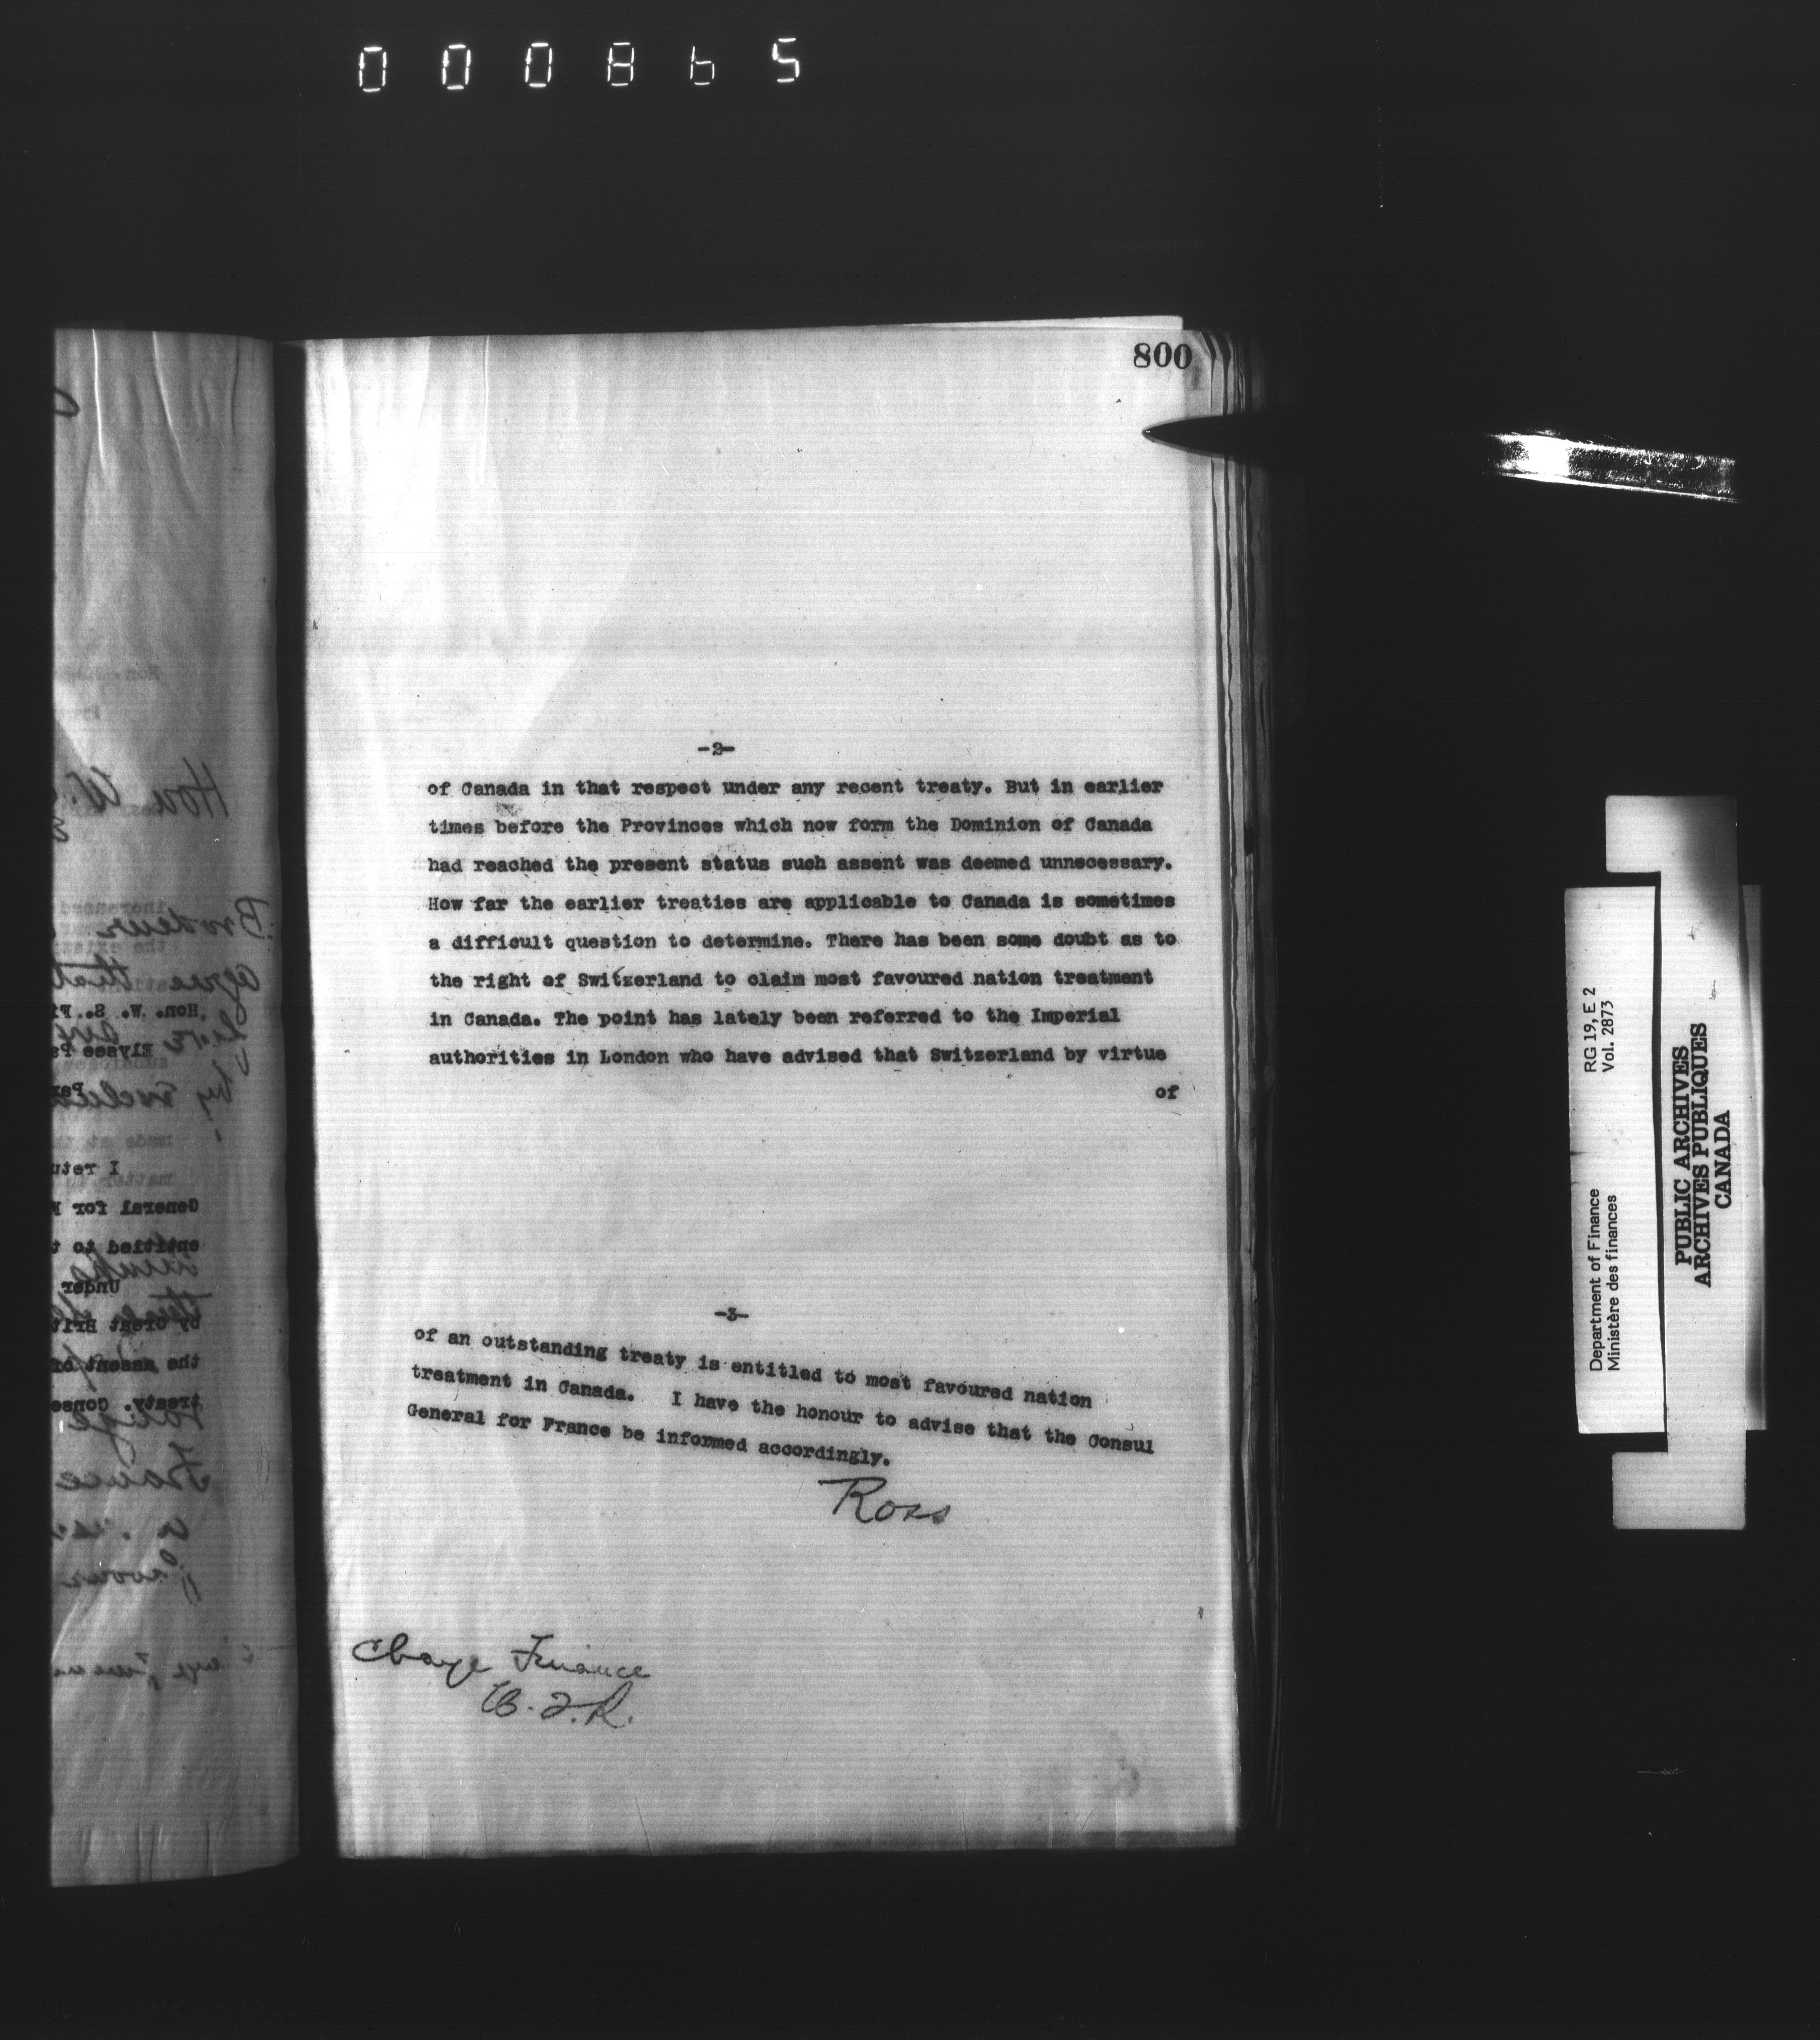 000865
800
-2-
of Canada in that respect under any recent treaty. But in earlier
times before the Provinces which now form the Dominion of Canada
had reached the present status such assent was deemed unnecessary.
How far the earlier treaties are applicable to Canada is sometimes
a difficult question to determine. There has been some doubt as to
the right of Switzerland to claim most favoured nation treatment
in Canada. The point has lately been referred to the Imperial
authorities in London who have advised that Switzerland by virtue
of
-3-
of an outstanding treaty is entitled to most favoured nation
treatment in Canada. I have the honour to advise that the Consul
General for France be informed accordingly.
Ross
Charge Finance
Hon W.
Brodeur
agree that
Hon. W. S.
Elysee
I
General for
entitled to
Under
by Great
the assent of
treaty.
France
RG 19, E 2
Vol. 2873
Department of Finance
Ministère des finances
PUBLIC ARCHIVES
ARCHIVES PUBLIQUES
CANADA